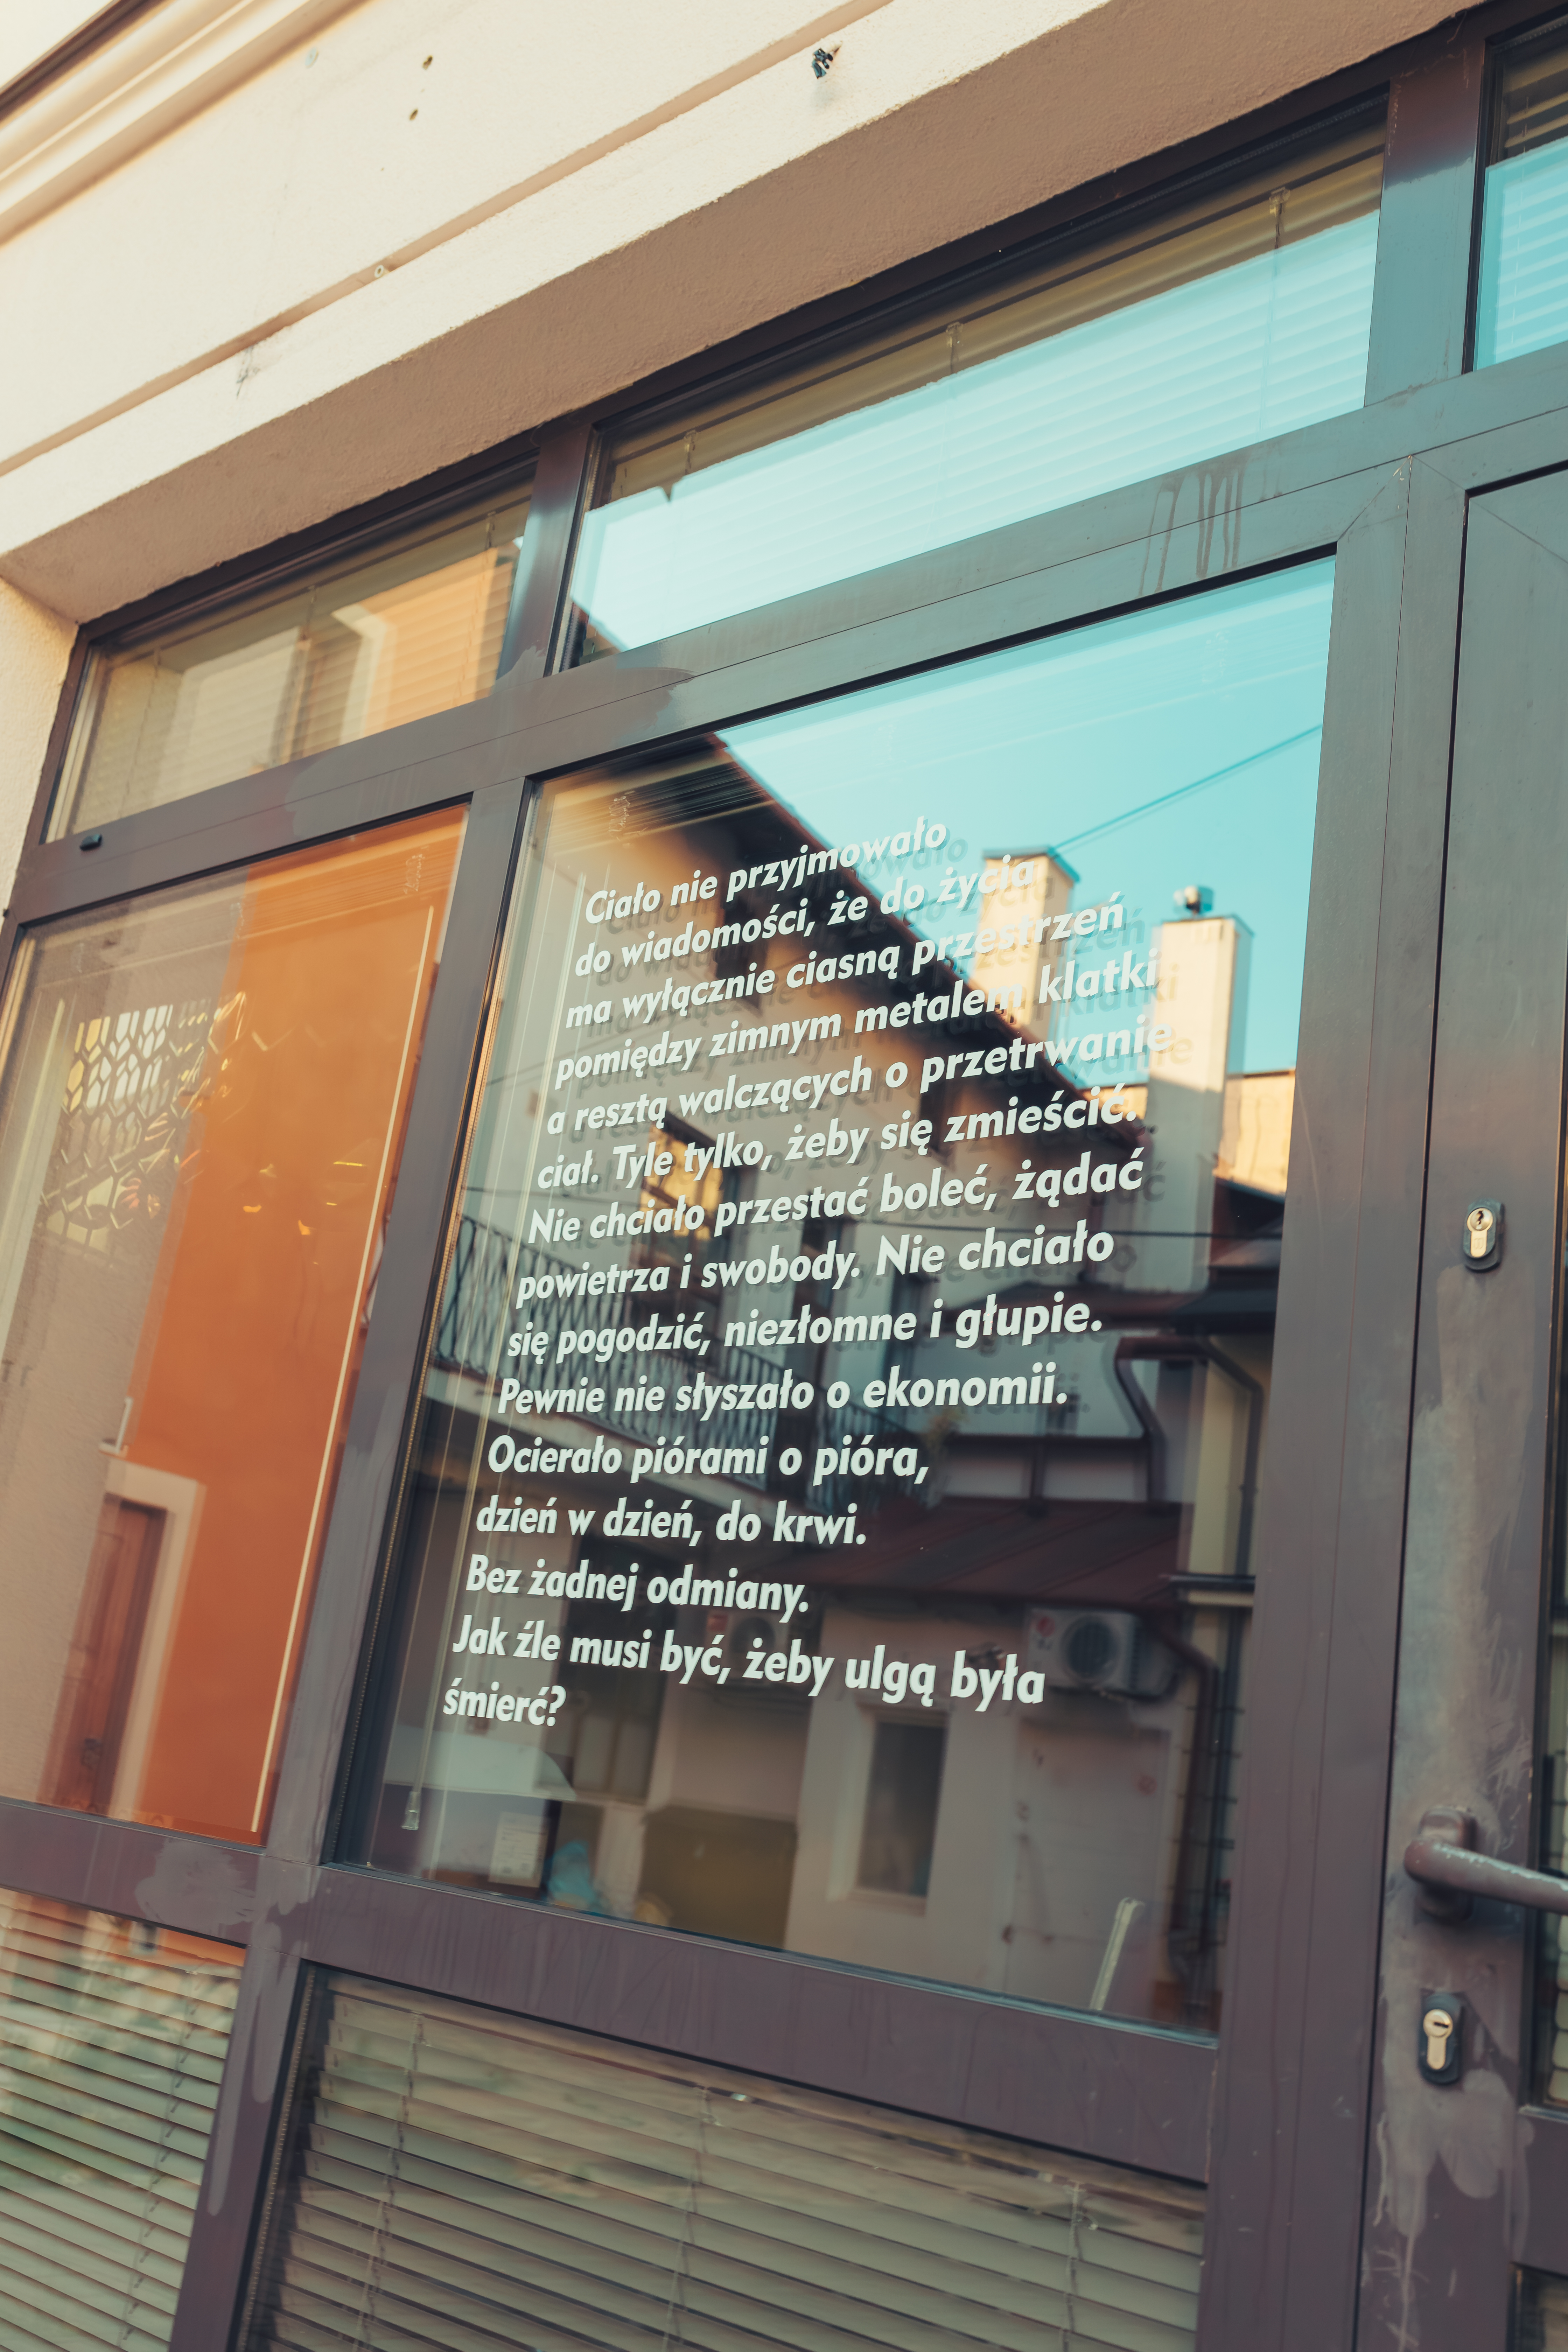 Ciało nie przyjmowało
do wiadomości, że do życia
ma wyłącznie ciasną przestrzeń
pomiędzy zimnym metalem klatki
a resztą walczących o przetrwanie
ciał. Tyle tylko, żeby się zmieścić.
Nie chciało przestać boleć, żądać
powietrza i swobody. Nie chciało
się pogodzić, niezłomne i głupie.
Pewnie nie słyszało o ekonomii.
Ocierało piórami o pióra,
dzień w dzień, do krwi.
Bez żadnej odmiany.
Jak źle musi być, żeby ulgą była
śmierć?